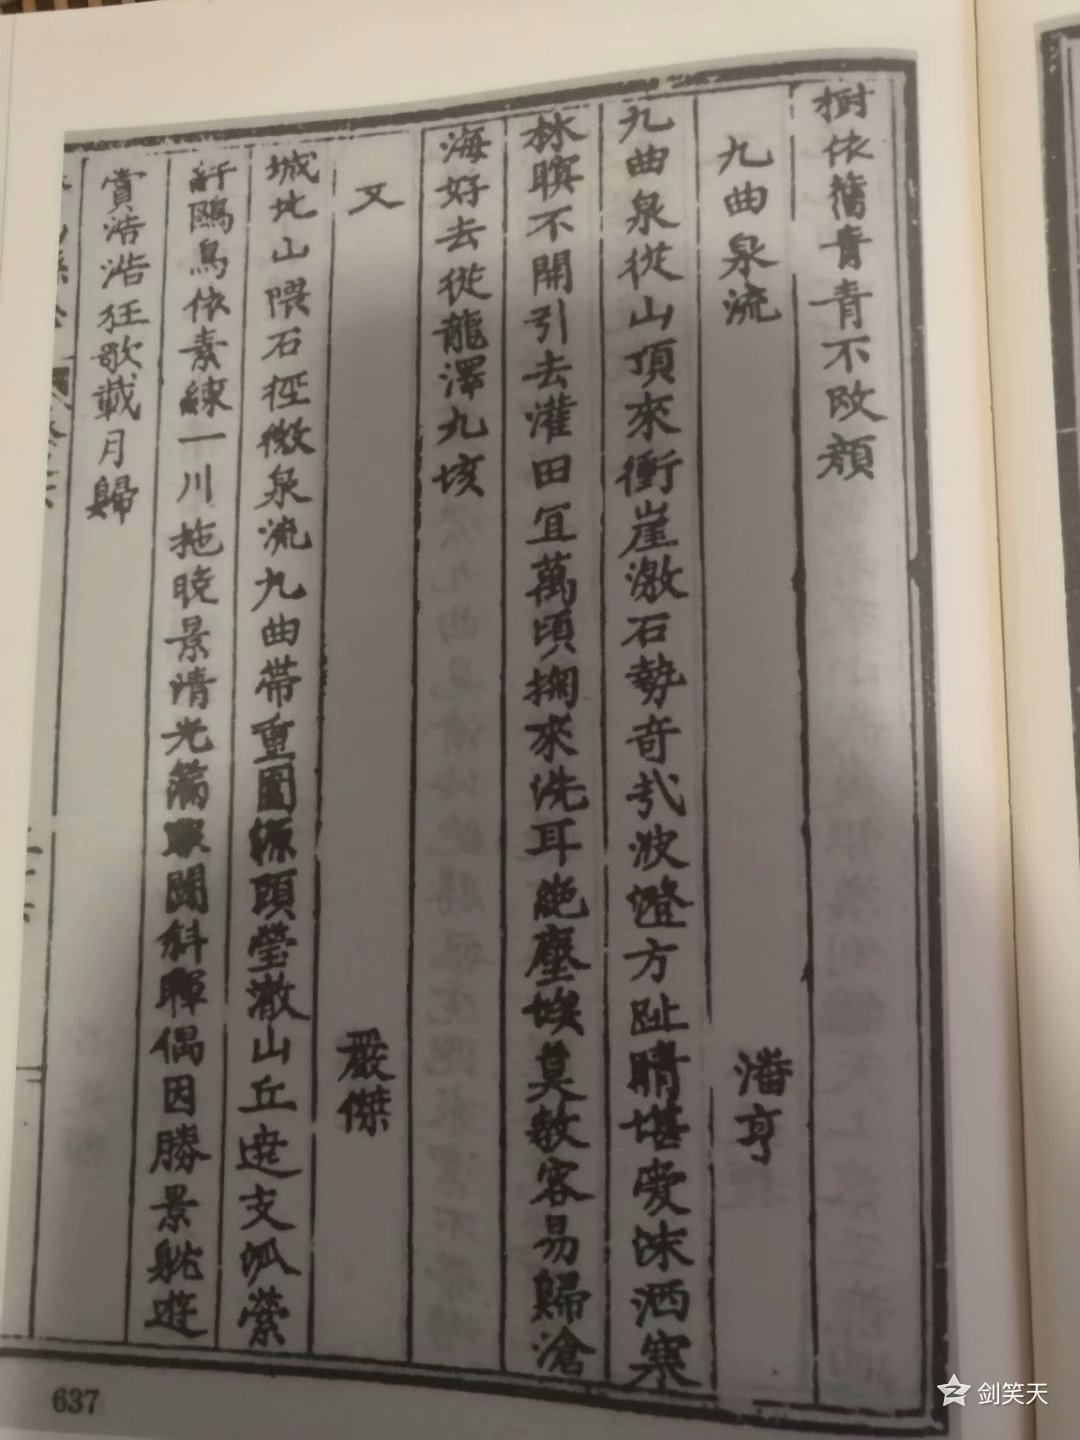 樹依舊青青不改顏
九曲泉流 潘亨
九曲泉從山頂來衝崖激石勢奇哉波澄方趾晴堪愛沫洒寒
林暝不開引去灌田宜萬頃掬來洗耳絶塵埃莫教容易歸滄
海好去從龍澤九垓
又 嚴傑
城北山隈石徑微泉流九曲帶重圍源頭瑩澈山丘遶支派縈
紆鷗鳥依素練一川拖晓景清光兩闘斜暉偶因勝景躭遊
賞浩浩狂歌載月歸
637
剑笑天